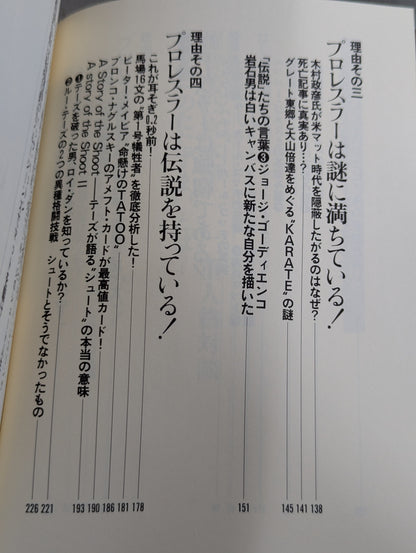 理由その三
プロレスラーは謎に満ちている!
木村政彦氏が米マット時代を隠蔽したがるのはなぜ? 138
死亡記事に真実あり…? 141
グレート東郷と大山倍達をめぐる"KARATE"の謎 145
「伝説」たちの言葉❸ジョージ・ゴーディエンコ
岩石男は白いキャンバスに新たな自分を描いた 151
理由その四
プロレスラーは伝説を持っている!
これが耳そぎ0.2秒前!
馬場16文の"第1号犠牲者"を徹底分析した! 178
ピーター・メイビア"命懸けのTATOO" 181
ブロンコ・ナグルスキーのアメフト・カードが最高値カード! 186
A Story of the Shoot 190
A story of the Shoot II ——テーズが語る"シュート"の本当の意味 193
❶テーズを破った男、ロイ・ダンを知っているか? 221
❷ルー・テーズの2つの異種格闘技戦 シュートとそうでなかったもの 226